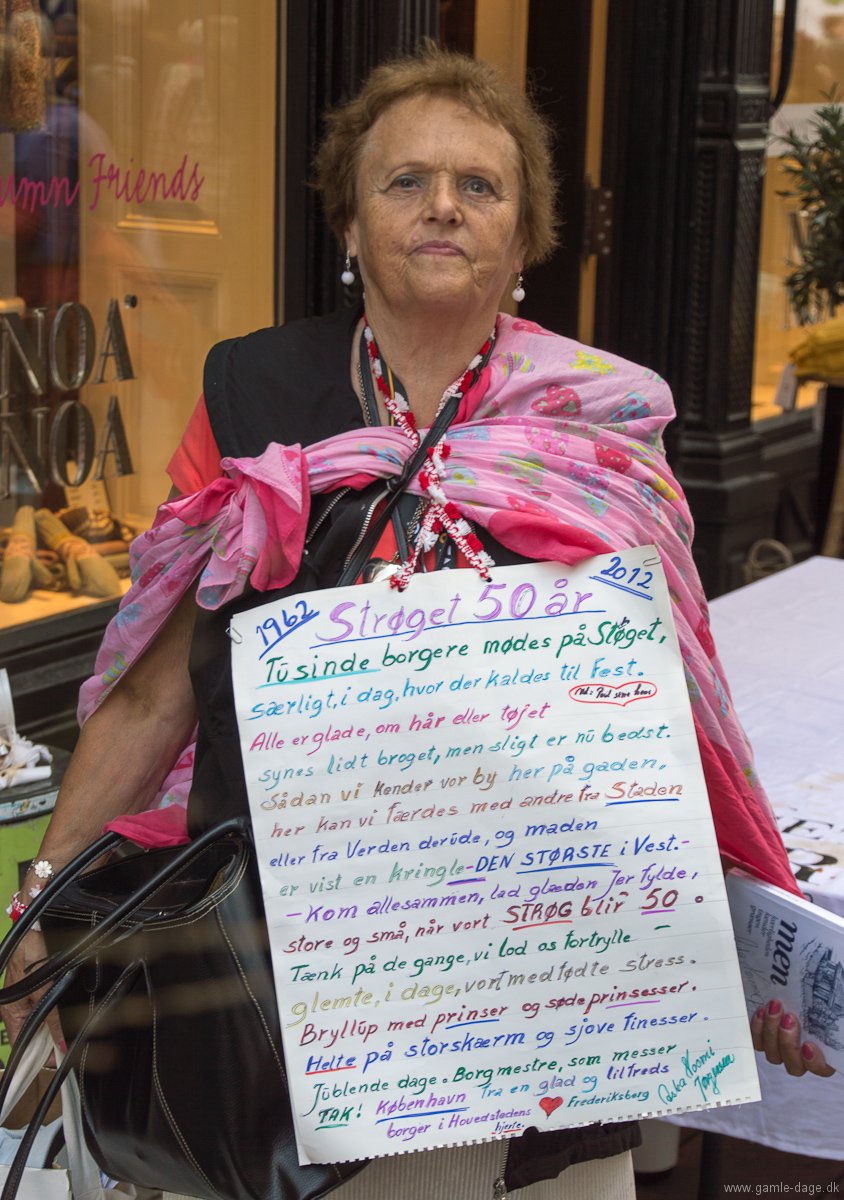 umn Friends
NOA
NOA
1962 Strøget 50 år 2012
Tusinde borgere mødes på Støget,
særligt, i dag, hvor der kaldes til Fest.
Alle er glade, om hår eller tøjet
synes lidt broget, men sligt er nu bedst.
Sådan vi kender vor by her på gaden,
her kan vi færdes med andre fra Staden
eller fra Verden derude, og maden
er vist en kringle - DEN STØRSTE i Vest. -
- Kom allesammen, lad glæden Jer fylde,
store og små, når vort STRØG blir 50.
Tænk på de gange, vi lod os fortrylle -
glemte, i dage, vort medfødte stress.
Bryllup med prinser og søde prinsesser.
Helte på storskærm og sjove finesser.
Jublende dage. Borgmestre, som messer
TAK! København fra en glad og tilfreds
borger i Hovedstadens hjerte. ♥ Frederiksberg
Noomi
Jørgensen
men
www.gamle-dage.dk